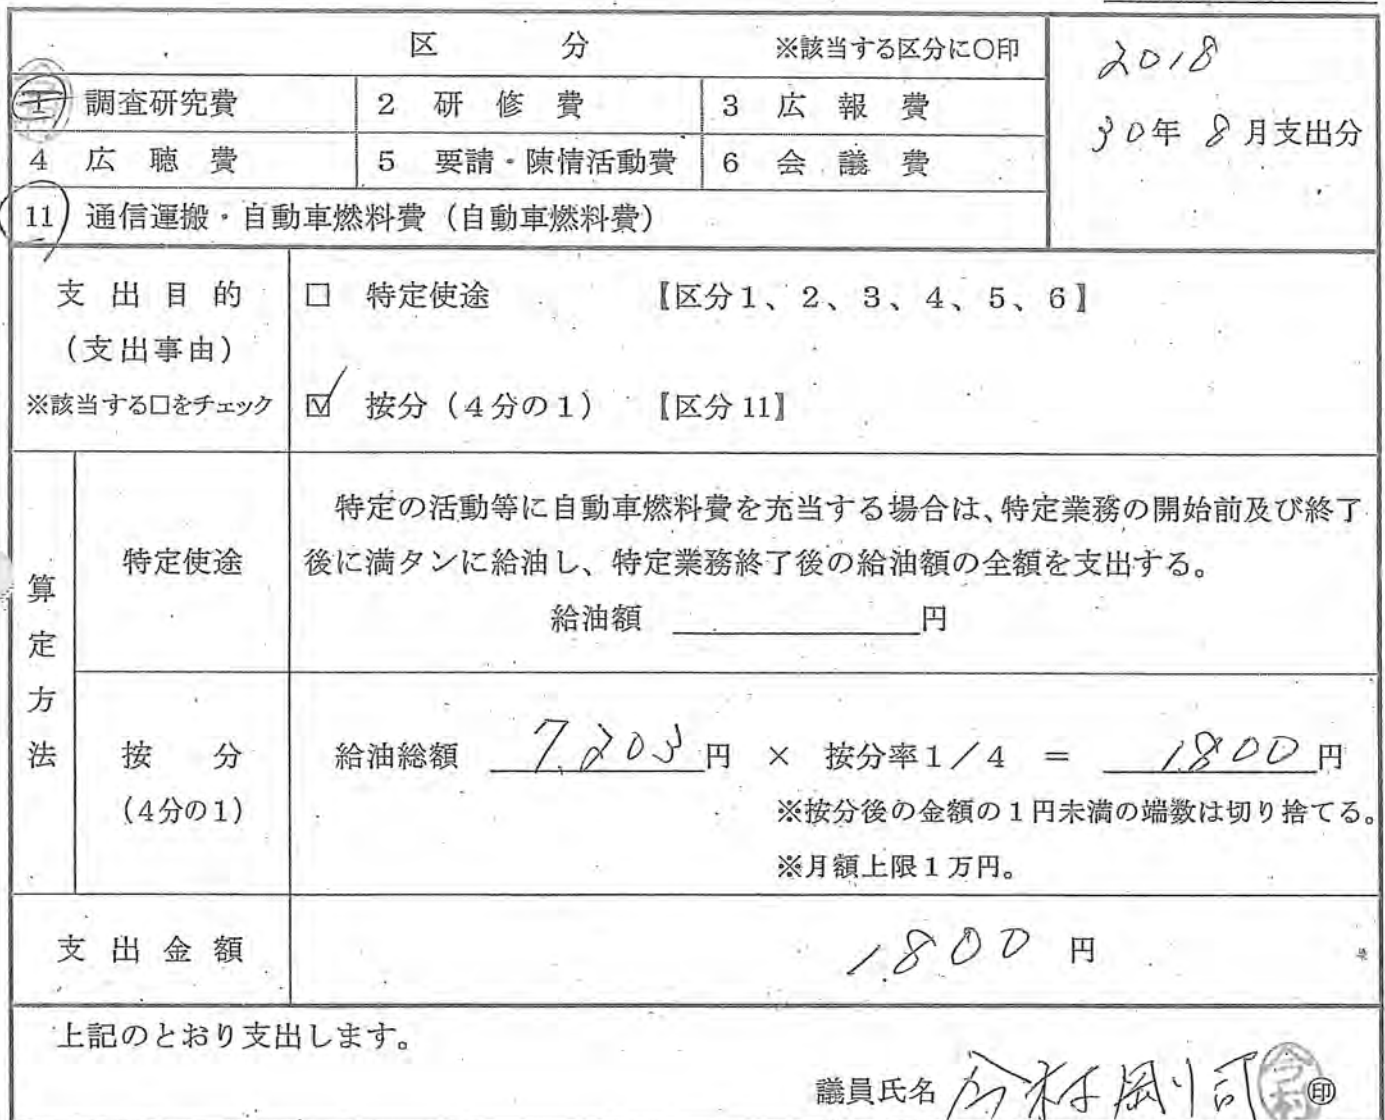 区 分 ※該当する区分に○印
2018
30年 8月支出分
1 調査研究費 2 研修費 3 広報費
4 広聴費 5 要請・陳情活動費 6 会議費
11 通信運搬・自動車燃料費（自動車燃料費）
支出目的
（支出事由）
※該当する□をチェック
□ 特定使途 〖区分1、2、3、4、5、6〗
☑ 按分（4分の1） 〖区分11〗
算定方法
特定使途
特定の活動等に自動車燃料費を充当する場合は、特定業務の開始前及び終了
後に満タンに給油し、特定業務終了後の給油額の全額を支出する。
給油額 円
按分
（4分の1）
給油総額 7,203円 × 按分率1／4 ＝ 1,800円
※按分後の金額の1円未満の端数は切り捨てる。
※月額上限1万円。
支出金額 1,800 円
上記のとおり支出します。
議員氏名 今村剛司 ㊞